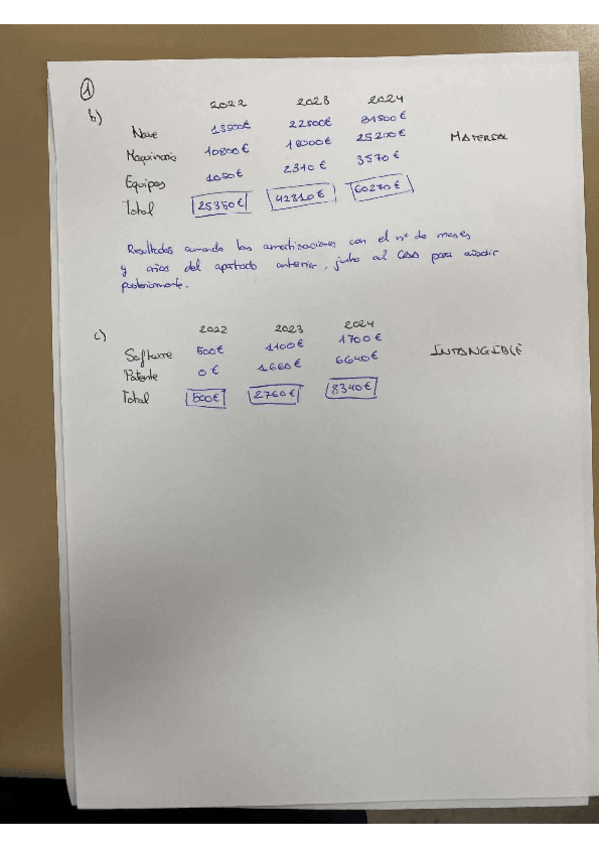 ①
b)
2022 2023 2024
Nave 13500€ 22500€ 31500€
Maquinaria 10800€ 18000€ 25200€ MATERIAL
Equipos 1050€ 2310€ 3570€
Total 25350€ 42810€ 60270€
Resultados sumando las amortizaciones con el nº de meses
y años del apartado anterior, junto al caso para añadir
posteriormente.
c)
2022 2023 2024
Software 500€ 1100€ 1700€ INTANGIBLE
Patente 0€ 1660€ 6640€
Total 500€ 2760€ 8340€